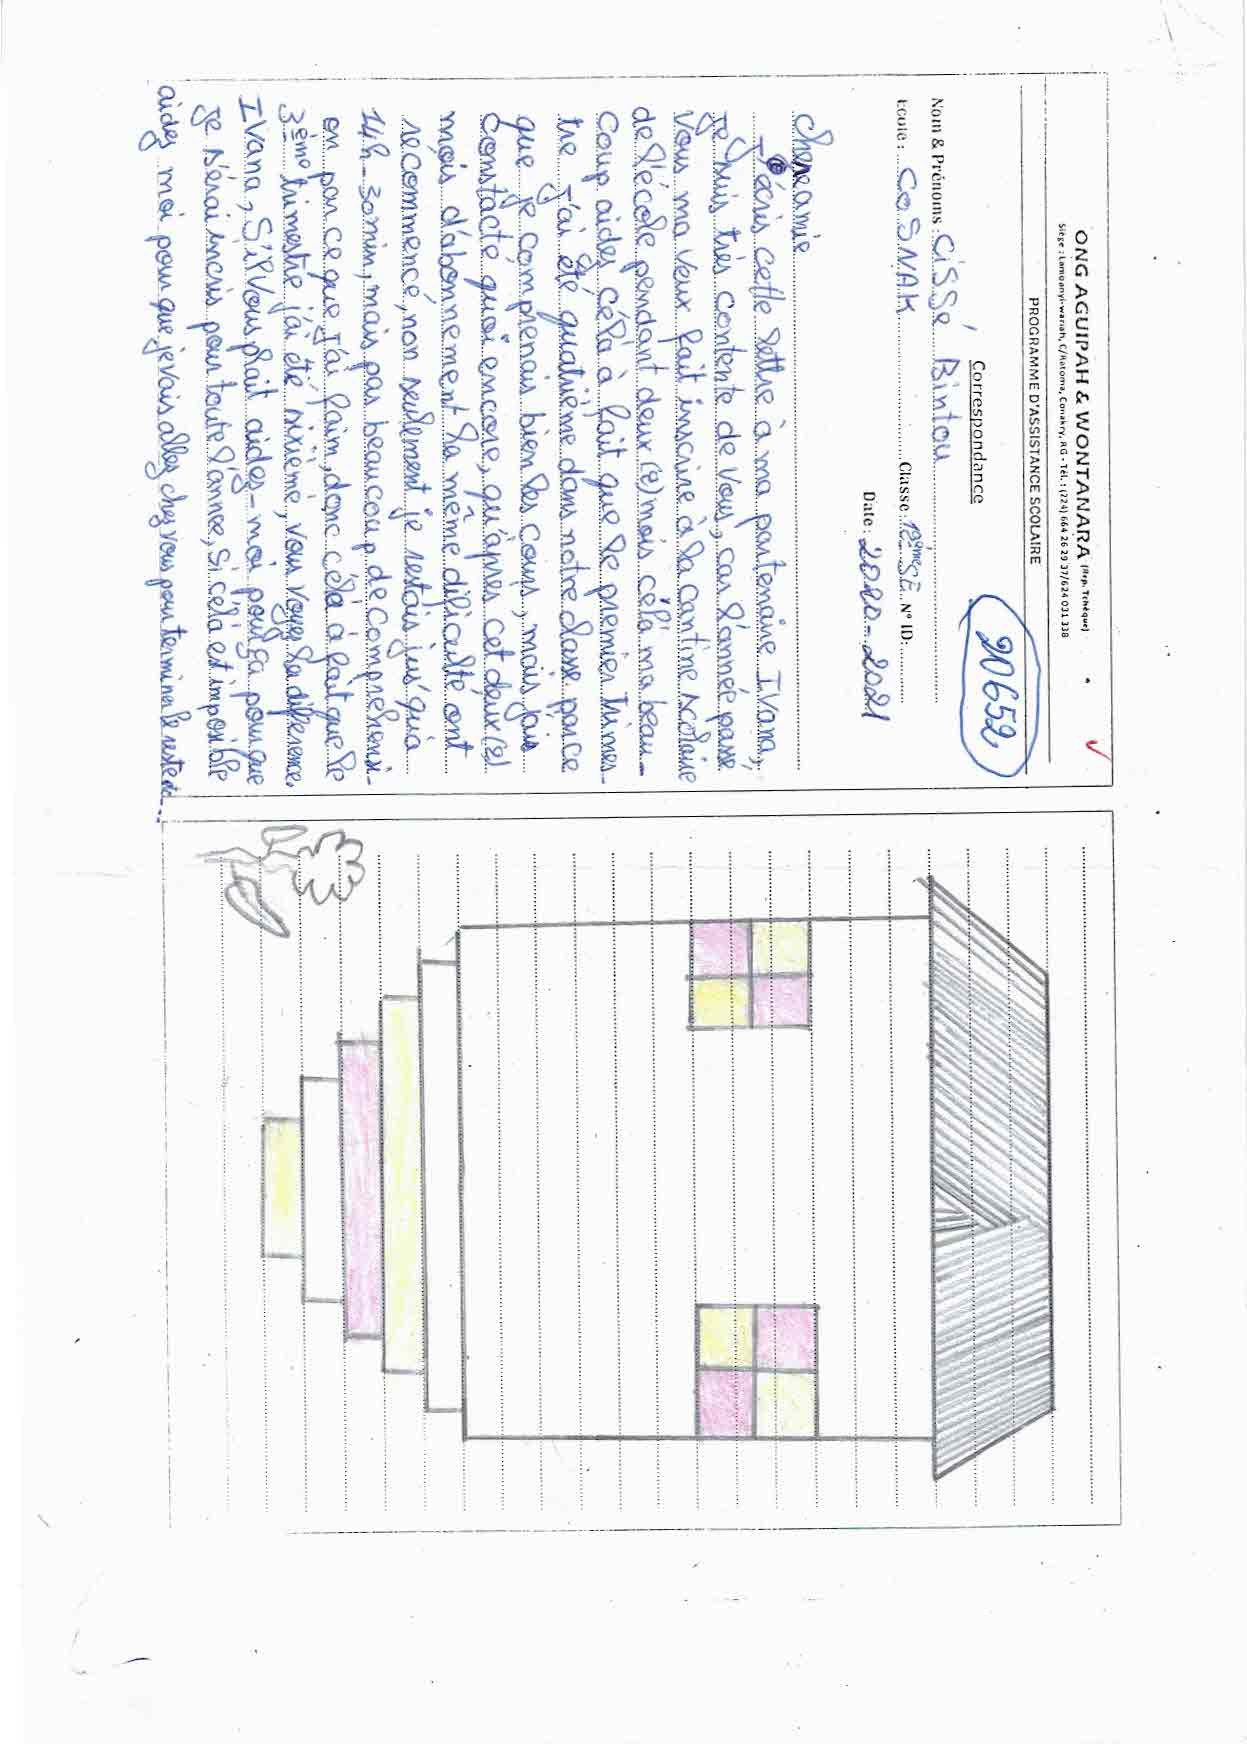 ONG AGUIPAH & WONTANARA (Rép. Tchèque)
Siège : Lamanyi-wariah, C/Ratoma, Conakry, RG - Tél. : (224) 664 26 29 37/624 031 338
PROGRAMME D'ASSISTANCE SCOLAIRE
Correspondance
20652
Nom & Prénoms : CISSé Bintou
Ecole : COSNAK Classe : 12èmeSE N° ID:
Date : 2020-2021
chere amie
J'écris cette lettre à ma partenaire IVana,
je suis très contente de vous, car l'année passé
vous ma veux fait inscrire à la cantine scolaire
de l'école pendant deux (2) mois cèla ma beau-
coup aides cèla à fait que le premier trimes-
tre j'ai été quatrième dans notre classe parce
que je comprenais bien les cours, mais j'ais
constacté quoi encore, qu'après cet deux (2)
mois d'abonnement la même dificulté ont
recommencé, non seulement je restais jus'qu'à
14h-30min, mais pas beaucoup de comprehensi-
on parce que j'ai faim, donc cèla à fait que le
3ème trimestre j'ai été sixième, vous voyez la diference.
IVana, S'il vous plait aides-moi pour ça pour que
je sérai incris pour toute l'année, si cela est imposible
aidez moi pour que je vais allez chez vous pour terminer le reste de...